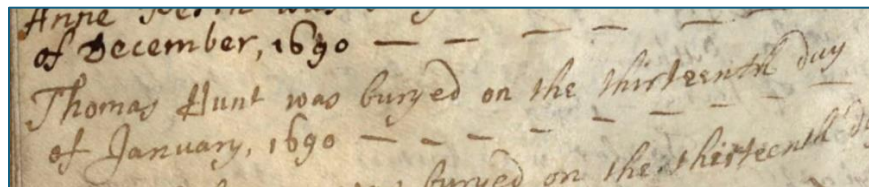 Anne
of December, 1690 — — — — —
Thomas Hunt was buryed on the thirteenth day
of January, 1690 — — — — — — — —
buryed on the thirteenth